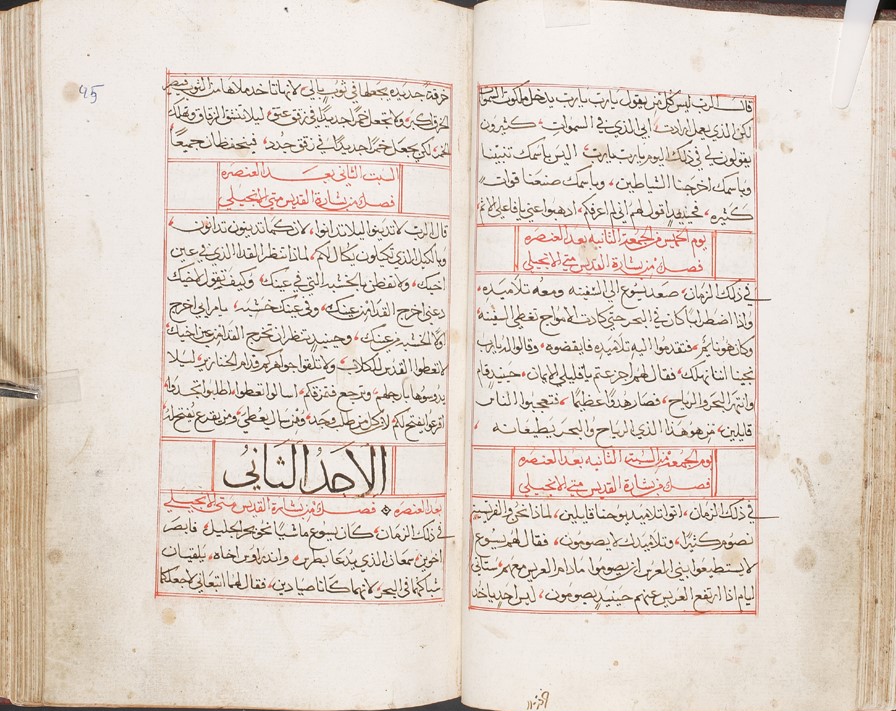 قال الرب ليس كل من يقول يارب يارب يدخل ملكوت السموات
لكن الذي يعمل ارادت ابي الذي في السموات كثيرون
يقولون لي في ذلك اليوم يارب يارب اليس باسمك تنبينا
وباسمك اخرجنا الشياطين وباسمك صنعنا قوات
كثيره فحينيد اقول لهم اني لم اعرفكم اذهبوا عني يا فاعلي الاثم
يوم الخميس من الجمعة الثانيه بعد العنصره
فصل من بشارة القديس متى الانجيلي
في ذلك الزمان صعد يسوع الى السفينه ومعه تلاميذه
واذا اضطراب كان في البحر حتى كادت الامواج تغطي السفينه
وكان هو نايم فتقدموا اليه تلاميذه فايقضوه وقالوا له يارب
نجينا اننا نهلك فقال لهم اجزعتم يا قليلي الايمان حينيد قام
وانتهر البحر والرياح فصار هدوا عظيما فتعجبوا الناس
قايلين من هو هذا الذي الرياح والبحر يطيعانه
يوم الجمعة من السبة الثانيه بعد العنصره
فصل من بشارة القديس متى الانجيلي
في ذلك الزمان اتوا تلاميذ يوحنا قايلين لماذا نحن والفريسيين
نصوم كثيرا وتلاميذك لا يصومون فقال لهم يسوع
لا يستطيعوا بني العرس ان يصوموا ما دام العريس معهم ستاتي
ايام اذا ارتفع العريس عنهم حينيد يصومون ليس احد ياخذ
95
خرقة جديده يجعلها في ثوب بالي لانها تاخذ ملاها من الثوب فيصير
الخرق اكبر ولا تجعل خمرا جديدا في زق عتق ليلا تنشق الزقاق ويهلك
الخمر لكن يجعل خمرا جديدا في زق جدد فينحفظان جميعا
السبت الثاني بعد العنصره
فصل من بشارة القديس متى الانجيلي
قال الرب لا تدينوا ليلا تدانوا لان كما تدينون تدانون
وبالكيل الذي تكيلون يكال لكم لماذا تنظر القذا الذي في عين
اخيك ولا تفطن بالخشبه التي في عينك وكيف تقول لاخيك
دعني اخرج القذا من عينك وفي عينك خشبه يا مرايي اخرج
اولا الخشبه من عينك وحينيد تنظر ان تخرج القذا من عين اخيك
لا تعطوا القدس للكلاب ولا تلقوا جواهركم قدام الخنازير ليلا
يدوسوها بارجلهم وترجع فتمزقكم اسالوا تعطوا اطلبوا تجدوا
اقرعوا يفتح لكم لان كل من طلب وجد ومن سال يعطى ومن يقرع يفتح له
الاحد الثاني
بعد العنصره فصل من بشارة القديس متى الانجيلي
في ذلك الزمان كان يسوع ماشيا نحو بحر الجليل فابصر
اخوين سمعان الذي يدعا بطرس واندراوس اخاه يلقيان
شباكهما في البحر لانهما كانا صيادين فقال لهما اتبعاني لاجعلكما